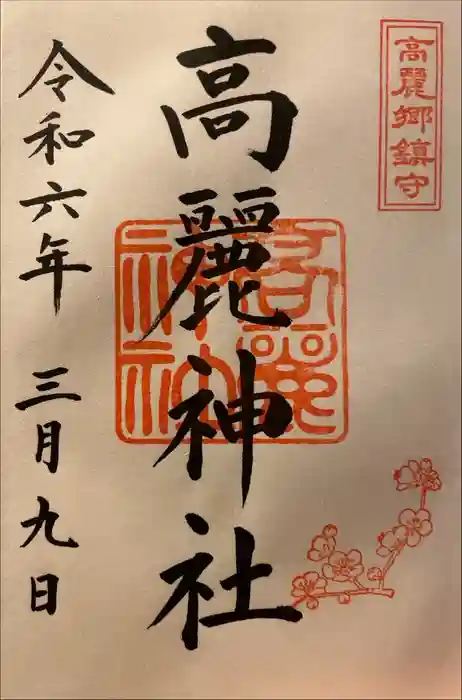 高麗郷鎮守
高麗神社
令和六年 三月九日
高麗神社